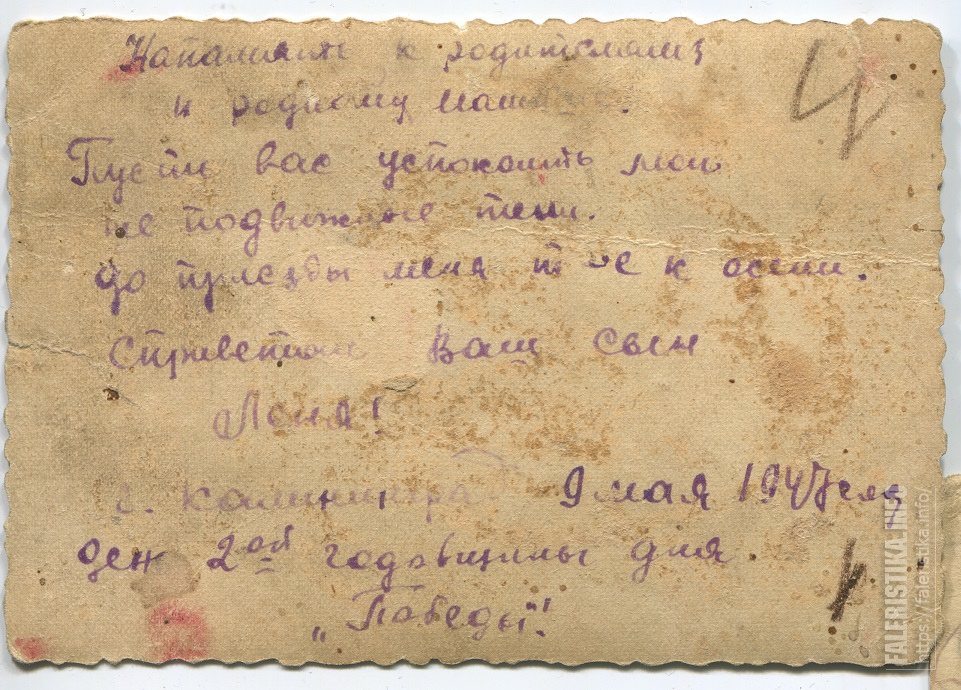 На память к родителям
и родному
Пусть вас успокоить мои
не подвижные тени.
до приезды меня к осени.
С приветом Ваш сын
Леня!
г. Калининград 9 мая 1947 года
ден 2ой годовщины дня
„Победы"!
FALERISTIKA.INFO
https://faleristika.info/